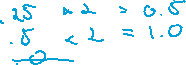 .25 x 2 = 0.5
.5 x 2 = 1.0
.0